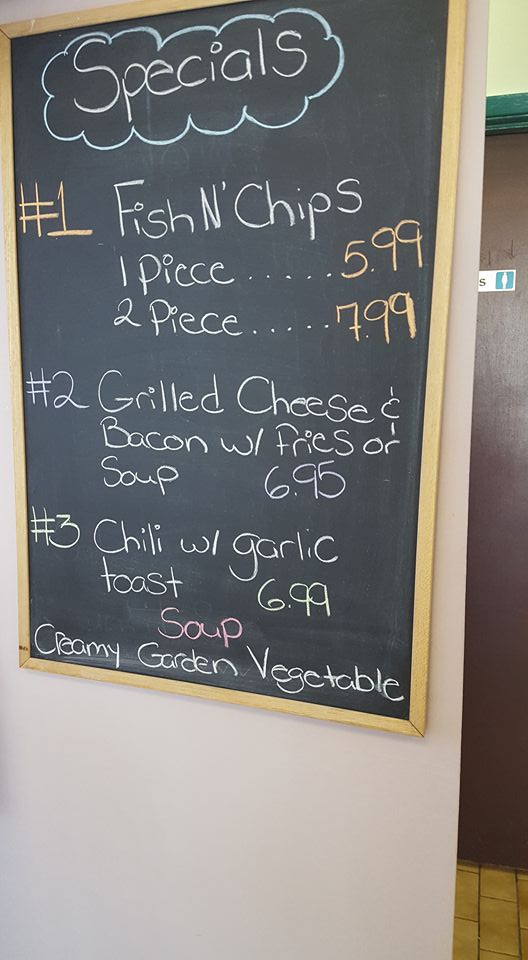 Specials
#1 Fish N' Chips
1 Piece ...... 5.99
2 Piece ...... 7.99
#2 Grilled Cheese &
Bacon w/ fries or
Soup 6.95
#3 Chili w/ garlic
toast 6.99
Soup
Creamy Garden Vegetable
S